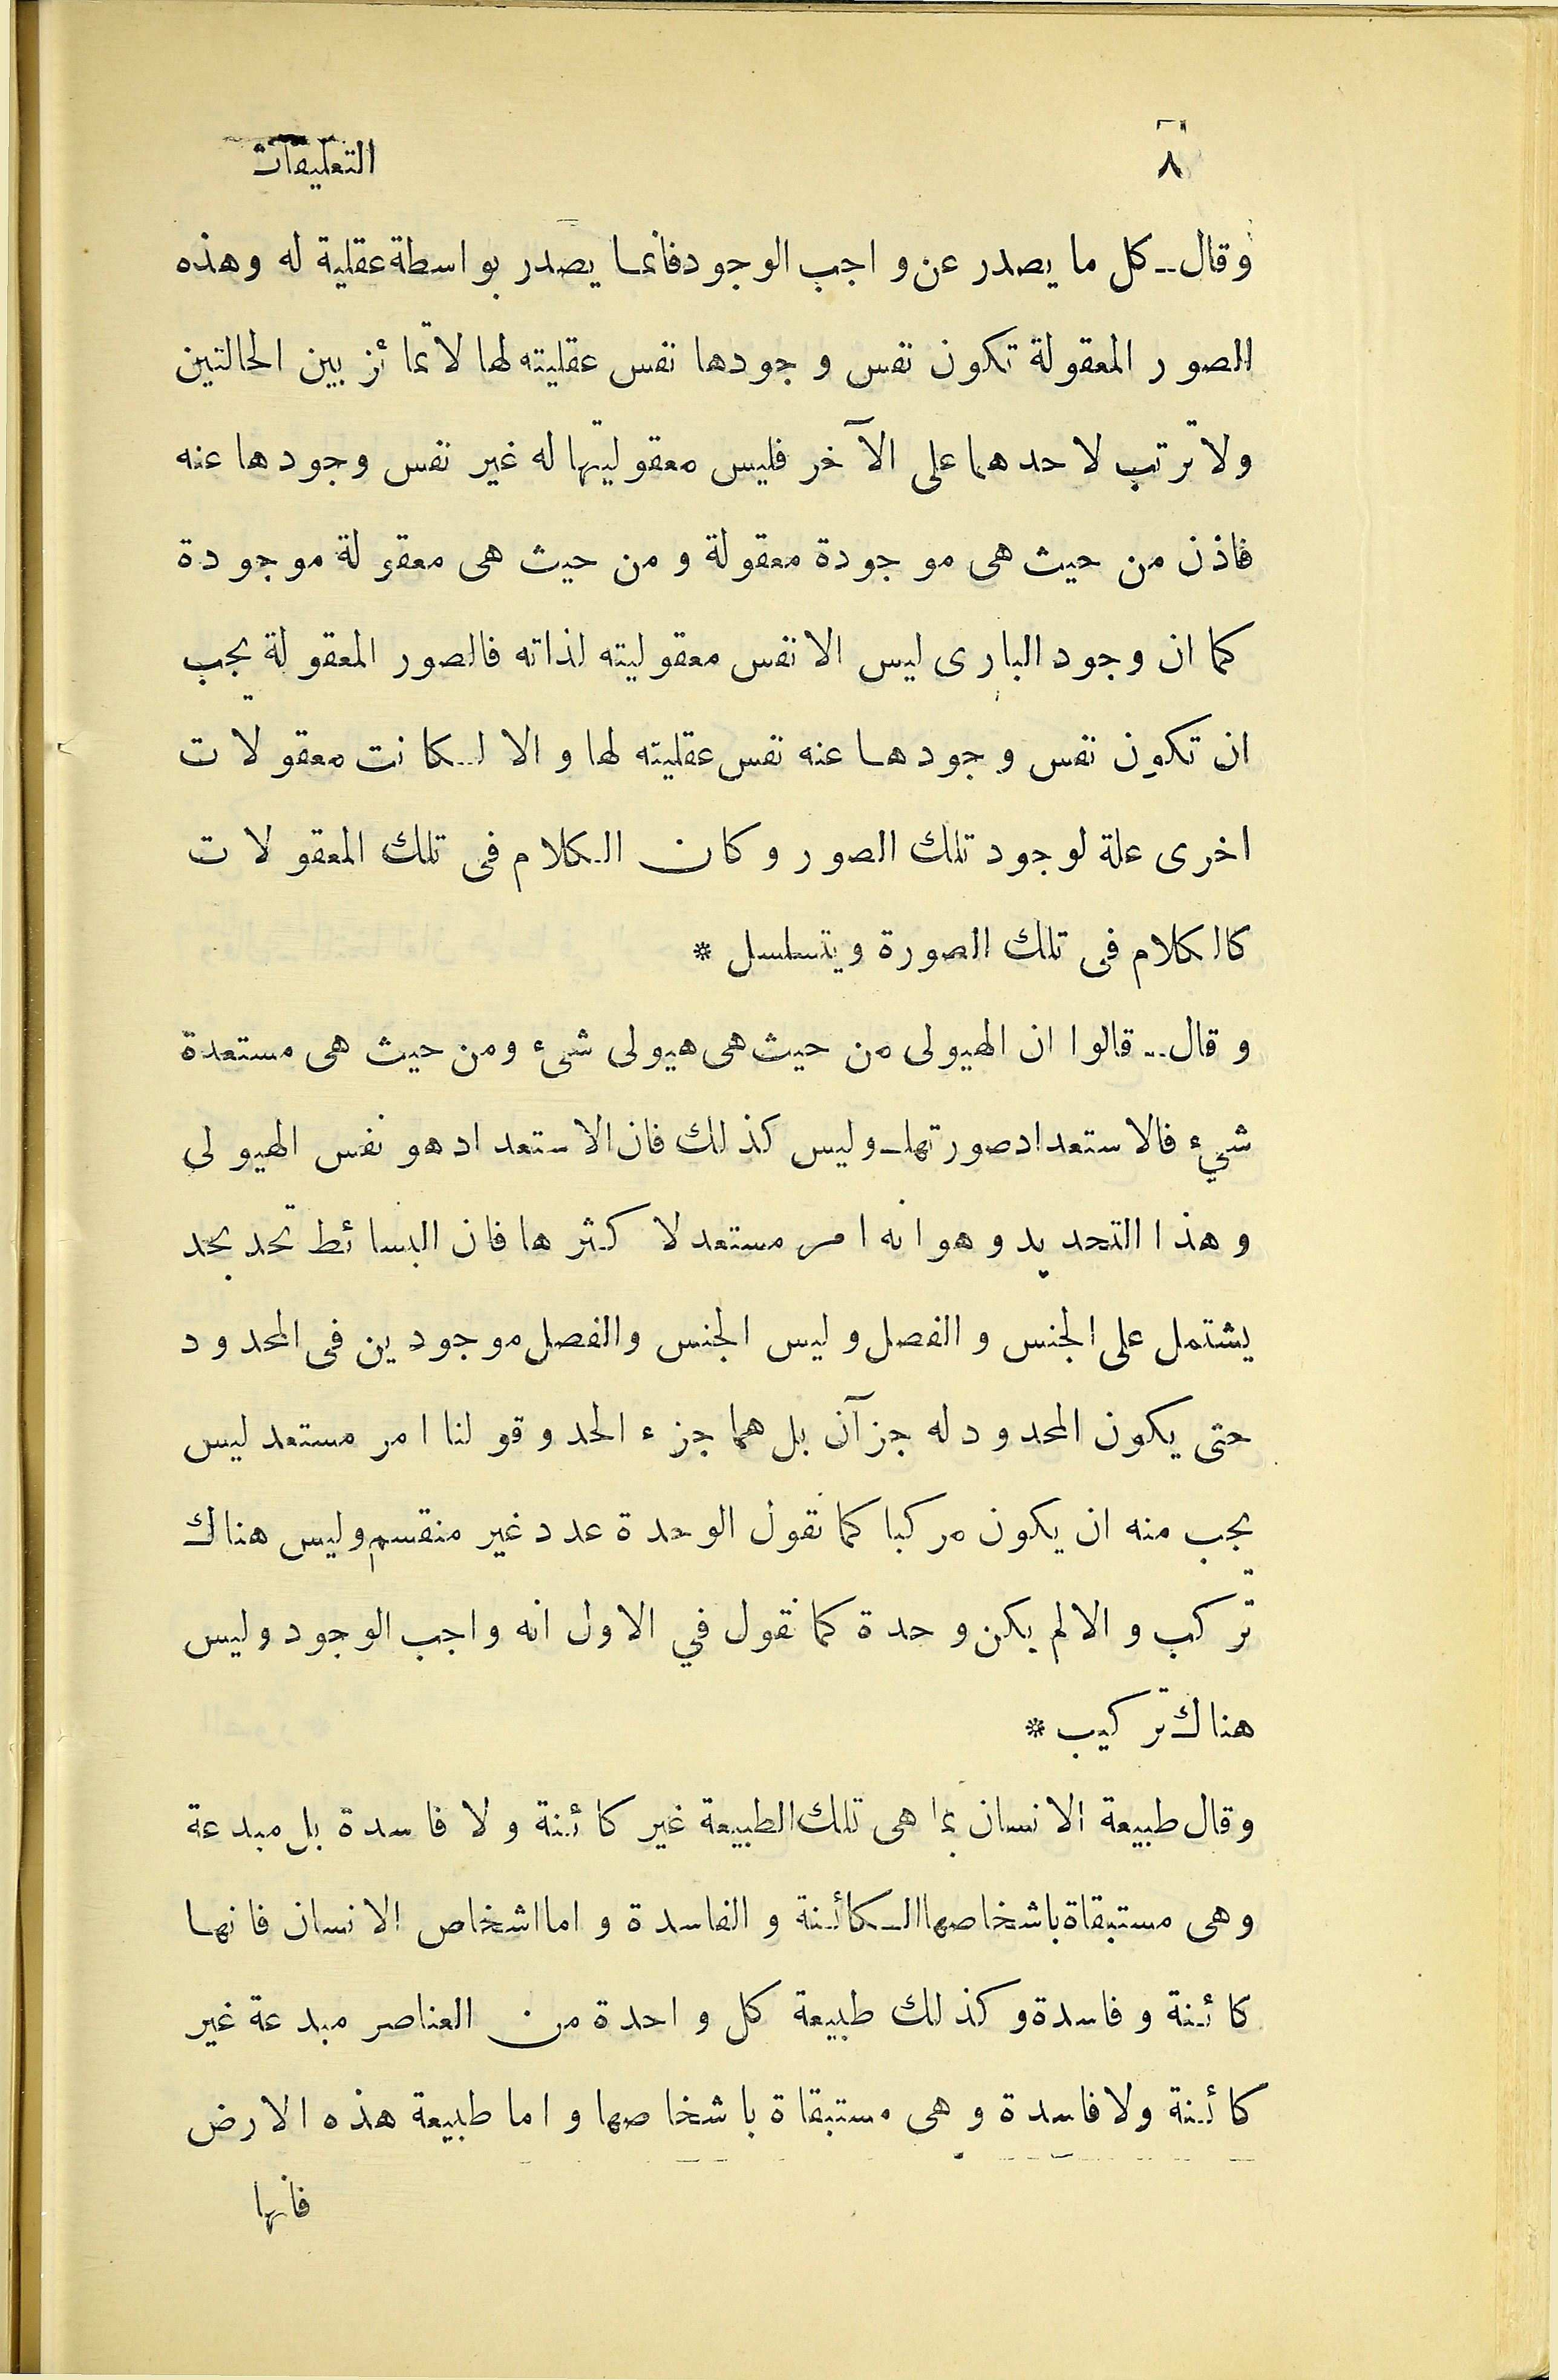 ٨
التعليقات
وقال -- كل ما يصدر عن واجب الوجود فانما يصدر بواسطة عقلية له وهذه
الصور المعقولة تكون نفس وجودها نفس عقليته لها لا تمائز بين الحالتين
ولا ترتب لاحدهما على الآخر فليس معقوليتها له غير نفس وجودها عنه
فاذن من حيث هى موجودة معقولة ومن حيث هى معقولة موجودة
كما ان وجود البارى ليس الا نفس معقوليته لذاته فالصور المعقولة يجب
ان تكون نفس وجودها عنه نفس عقليته لها والا لكانت معقولات
اخرى علة لوجود تلك الصور وكان الكلام فى تلك المعقولات
كالكلام فى تلك الصورة ويتسلسل *
وقال -- قالوا ان الهيولى من حيث هى هيولى شىء ومن حيث هى مستعدة
شيء فالاستعداد صورتها - وليس كذلك فان الاستعداد هو نفس الهيولى
وهذا التحديد وهو انه امر مستعد لا كثرها فان البسائط تحد بحد
يشتمل على الجنس والفصل وليس الجنس والفصل موجودين فى المحدود
حتى يكون المحدود له جزآن بل هما جزء الحد وقولنا امر مستعد ليس
يجب منه ان يكون مركبا كما نقول الوحدة عدد غير منقسم وليس هناك
تركب والا لم يكن وحدة كما نقول في الاول انه واجب الوجود وليس
هناك تركيب *
وقال طبيعة الانسان بما هى تلك الطبيعة غير كائنة ولا فاسدة بل مبدعة
وهى مستبقاة باشخاصها الكائنة والفاسدة واما اشخاص الانسان فانها
كائنة وفاسدة وكذلك طبيعة كل واحدة من العناصر مبدعة غير
كائنة ولا فاسدة وهى مستبقاة باشخاصها واما طبيعة هذه الارض
فانها